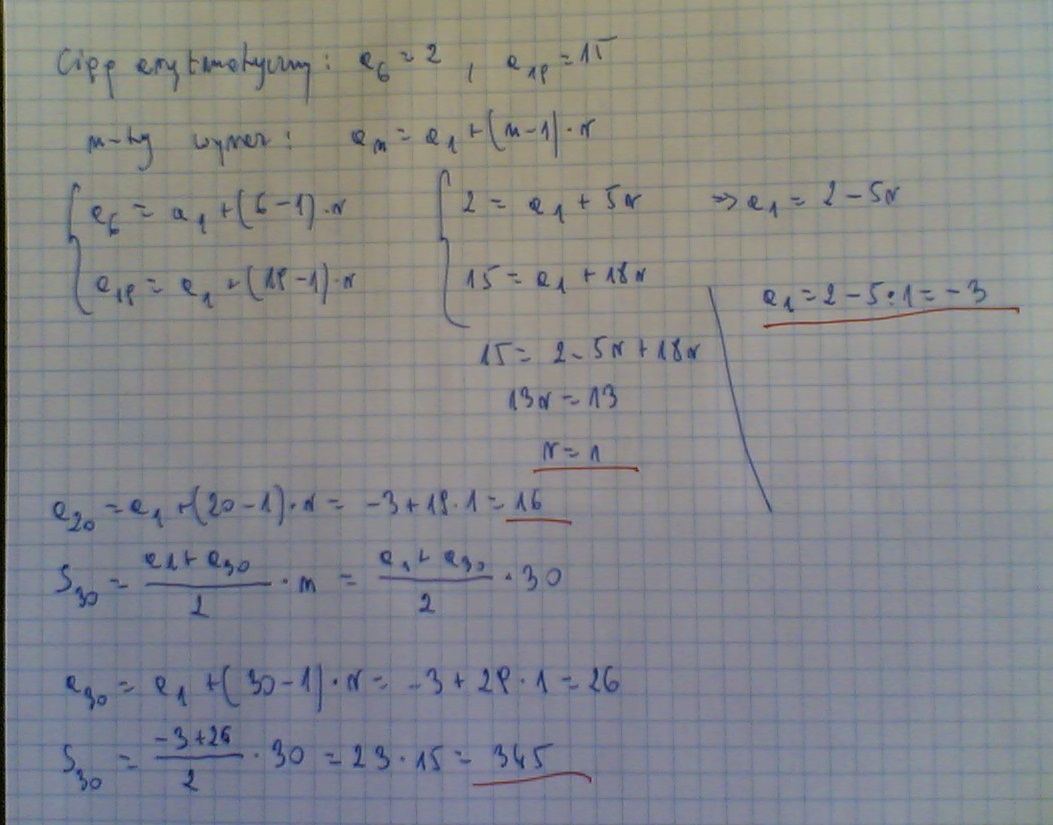 Ciąg arytmetyczny: a₆ = 2 , a₁₉ = 15
n-ty wyraz: aₙ = a₁ + (n-1)·r
a₆ = a₁ + (6-1)·r
2 = a₁ + 5r ⇒ a₁ = 2 - 5r
a₁₉ = a₁ + (19-1)·r
15 = a₁ + 18r
a₁ = 2 - 5·1 = -3
15 = 2 - 5r + 18r
13r = 13
r = 1
a₂₀ = a₁ + (20-1)·r = -3 + 19·1 = 16
S₃₀ = (a₁ + a₃₀)/2 · n = (a₁ + a₃₀)/2 · 30
a₃₀ = a₁ + (30-1)·r = -3 + 29·1 = 26
S₃₀ = (-3+26)/2 · 30 = 23·15 = 345